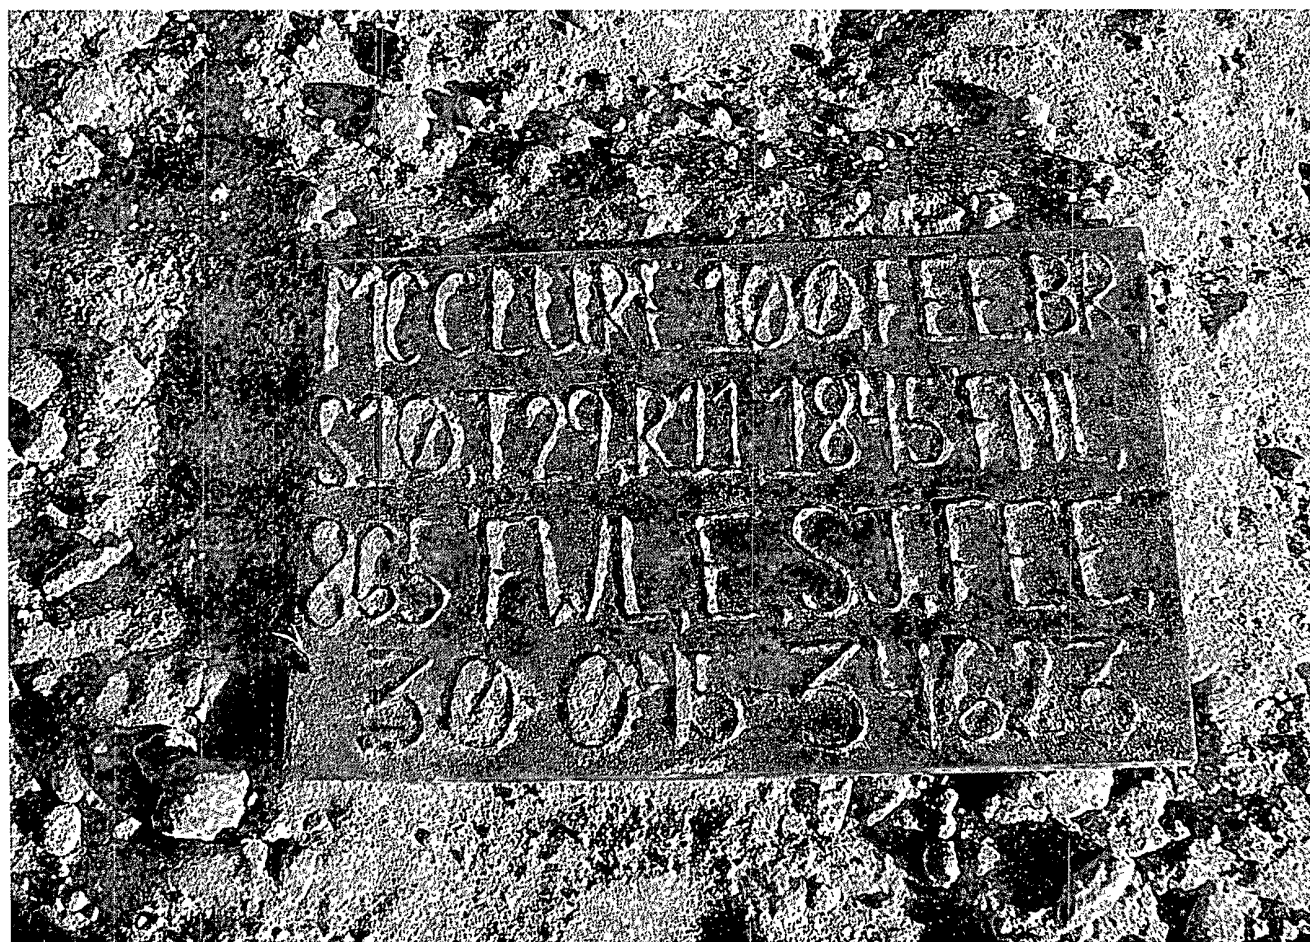 MCCLURE 100, FEE BR,
S10, T29, R11 1845' FNL,
865' FWL, E, S.J, FEE,
30 045 34623